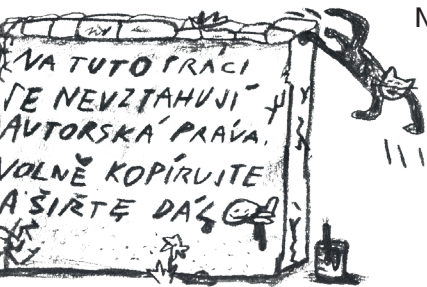 NA TUTO PRÁCI
SE NEVZTAHUJÍ
AUTORSKÁ PRÁVA.
VOLNĚ KOPÍRUJTE
A ŠIŘTE DÁL
N